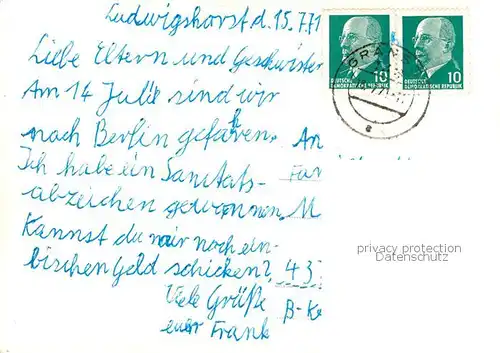 Ludwigshorst d. 15.7.71
Liebe Eltern und Geschwister
Am 14 Julie sind wir
nach Berlin gefahren. An
Ich habe ein Sanitäts-
abzeichen gewonnen. M
Kannst du mir noch ein
bischen Geld schicken? 43
Viele Grüße B-Ke
euer Frank
DEUTSCHE
DEMOKRATISCHE REPUBLIK
10
DEUTSCHE
DEMOKRATISCHE REPUBLIK
10
privacy protection
Datenschutz